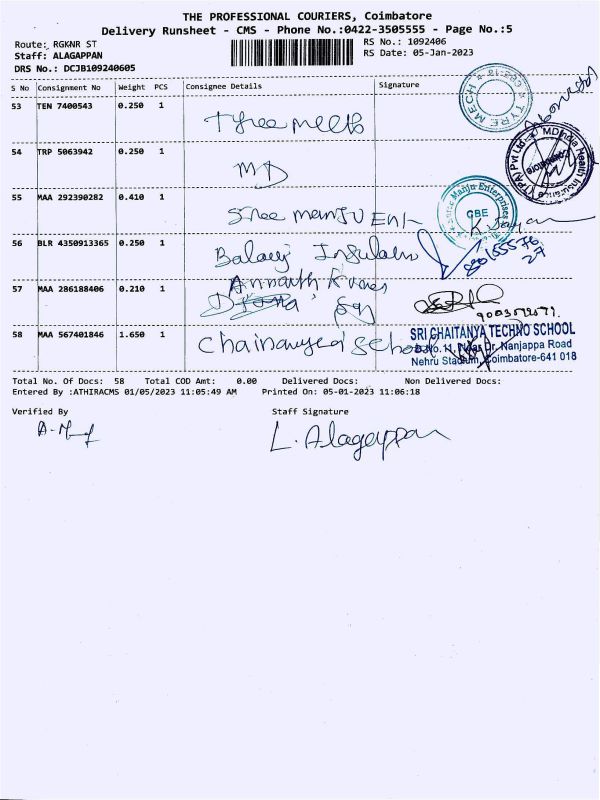 THE PROFESSIONAL COURIERS, Coimbatore
Delivery Runsheet - CMS - Phone No.:0422-3505555 - Page No.:5
Route: RGKNR ST
Staff: ALAGAPPAN
DRS No.: DCJB109240605
RS No.: 1092406
RS Date: 05-Jan-2023
S No Consignment No Weight PCS Consignee Details Signature
53 TEN 7400543 0.250 1
TYRE MECH
54 TRP 5063942 0.250 1 MD
MDIndia Health Insurance (TPA) Pvt Ltd
55 MAA 292390282 0.410 1 Sree manju Ent
Sree Manju Enterprises CBE
56 BLR 4350913365 0.250 1 Balaji
57 MAA 286188406 0.210 1
58 MAA 567401846 1.650 1 school
SRI CHAITANYA TECHNO SCHOOL
Dr. Nanjappa Road
Nehru Stadium, Coimbatore-641 018
Total No. Of Docs: 58 Total COD Amt: 0.00 Delivered Docs: Non Delivered Docs:
Entered By :ATHIRACMS 01/05/2023 11:05:49 AM Printed On: 05-01-2023 11:06:18
Verified By Staff Signature
L. Alagappan